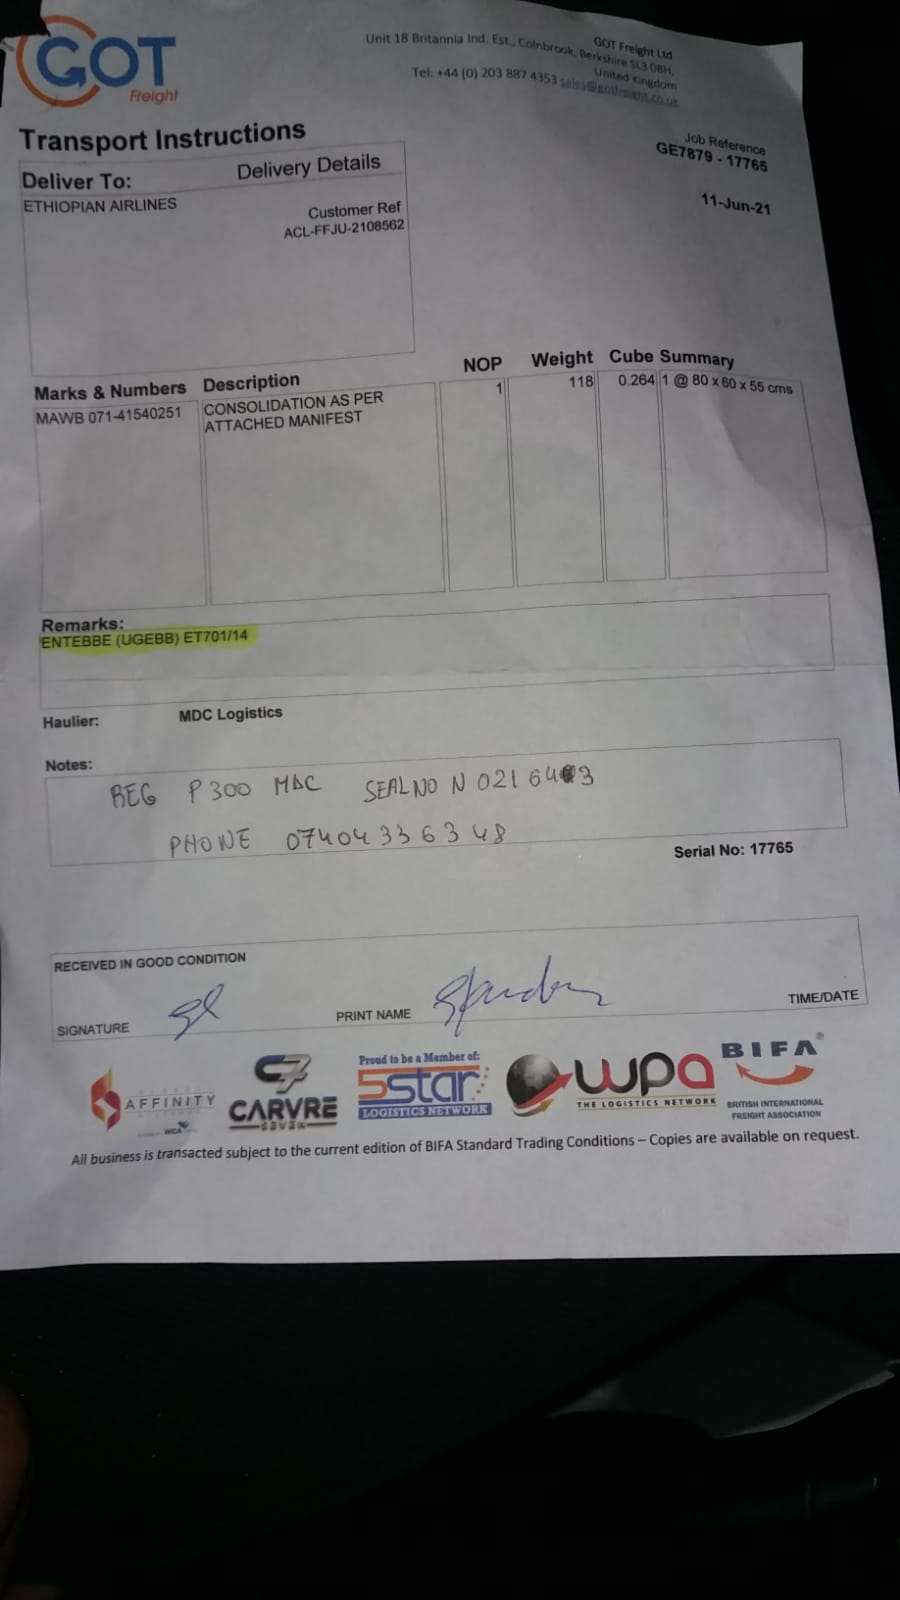 GOT
Freight
GOT Freight Ltd
Unit 18 Britannia Ind. Est., Colnbrook, Berkshire SL3 0BH,
United Kingdom
Tel: +44 (0) 203 887 4353 sales@gotfreight.co.uk
Transport Instructions
Job Reference
GE7879 - 17765
11-Jun-21
Deliver To:
Delivery Details
ETHIOPIAN AIRLINES
Customer Ref
ACL-FFJU-2108562
Marks & Numbers Description NOP Weight Cube Summary
MAWB 071-41540251 CONSOLIDATION AS PER 1 118 0.264 1 @ 80 x 60 x 55 cms
ATTACHED MANIFEST
Remarks:
ENTEBBE (UGEBB) ET701/14
Haulier: MDC Logistics
Notes:
REG P300 MDC SEAL NO N 
PHONE 07404336348
Serial No: 17765
RECEIVED IN GOOD CONDITION
SIGNATURE
PRINT NAME
TIME/DATE
AFFINITY
WCA
C7
CARVRE
SEVEN
Proud to be a Member of:
5star
LOGISTICS NETWORK
wpa
THE LOGISTICS NETWORK
BIFA
BRITISH INTERNATIONAL
FREIGHT ASSOCIATION
All business is transacted subject to the current edition of BIFA Standard Trading Conditions – Copies are available on request.